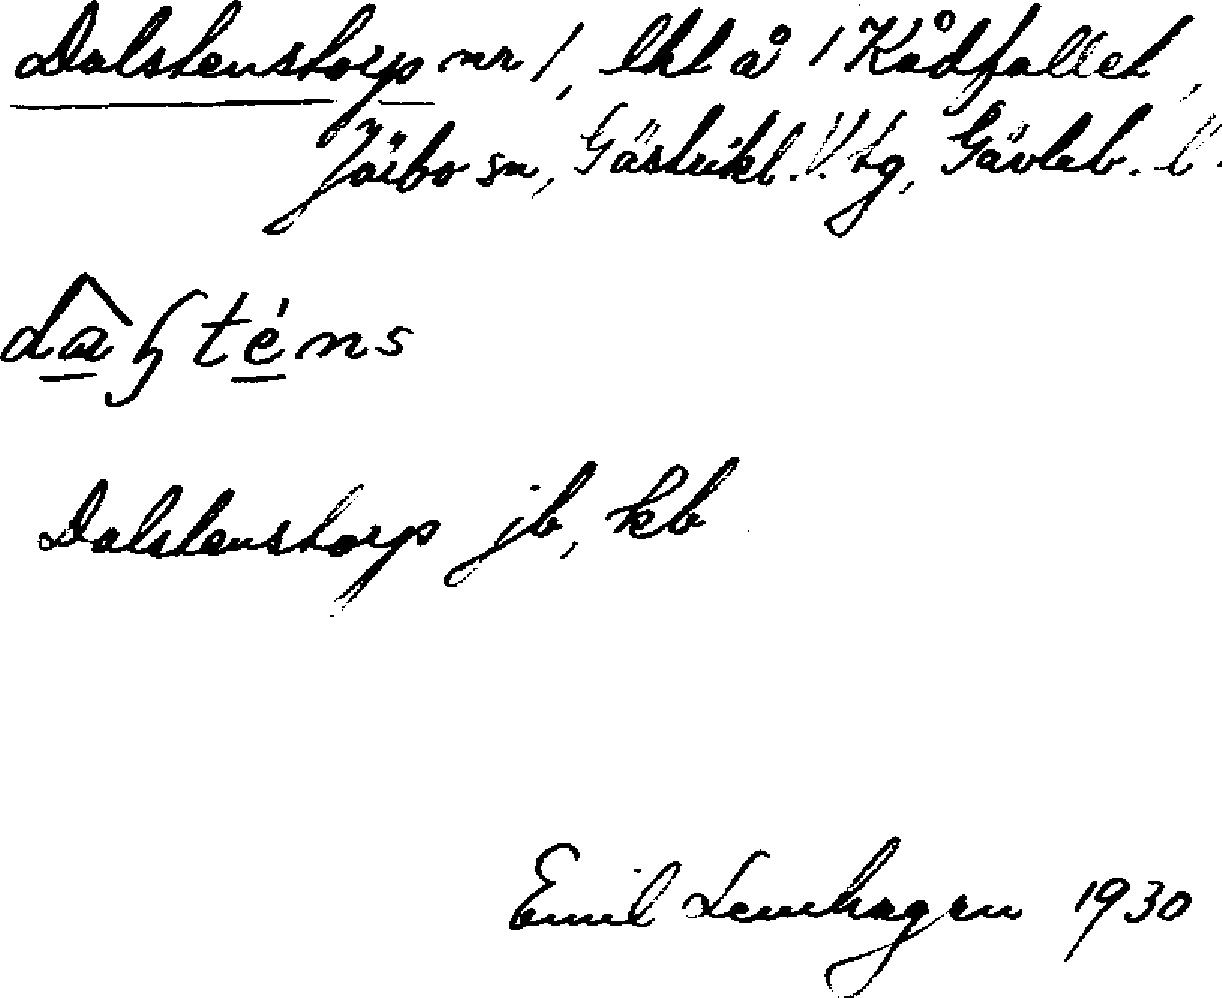 Dalstenstorp nr 1, lht å 1 Kådfallet,
Järbo sn, Gästrikl. V. tg, Gävleb. l.
da̲ʃténs
Dalstenstorp jb, kb
Emil Lennhagen 1930